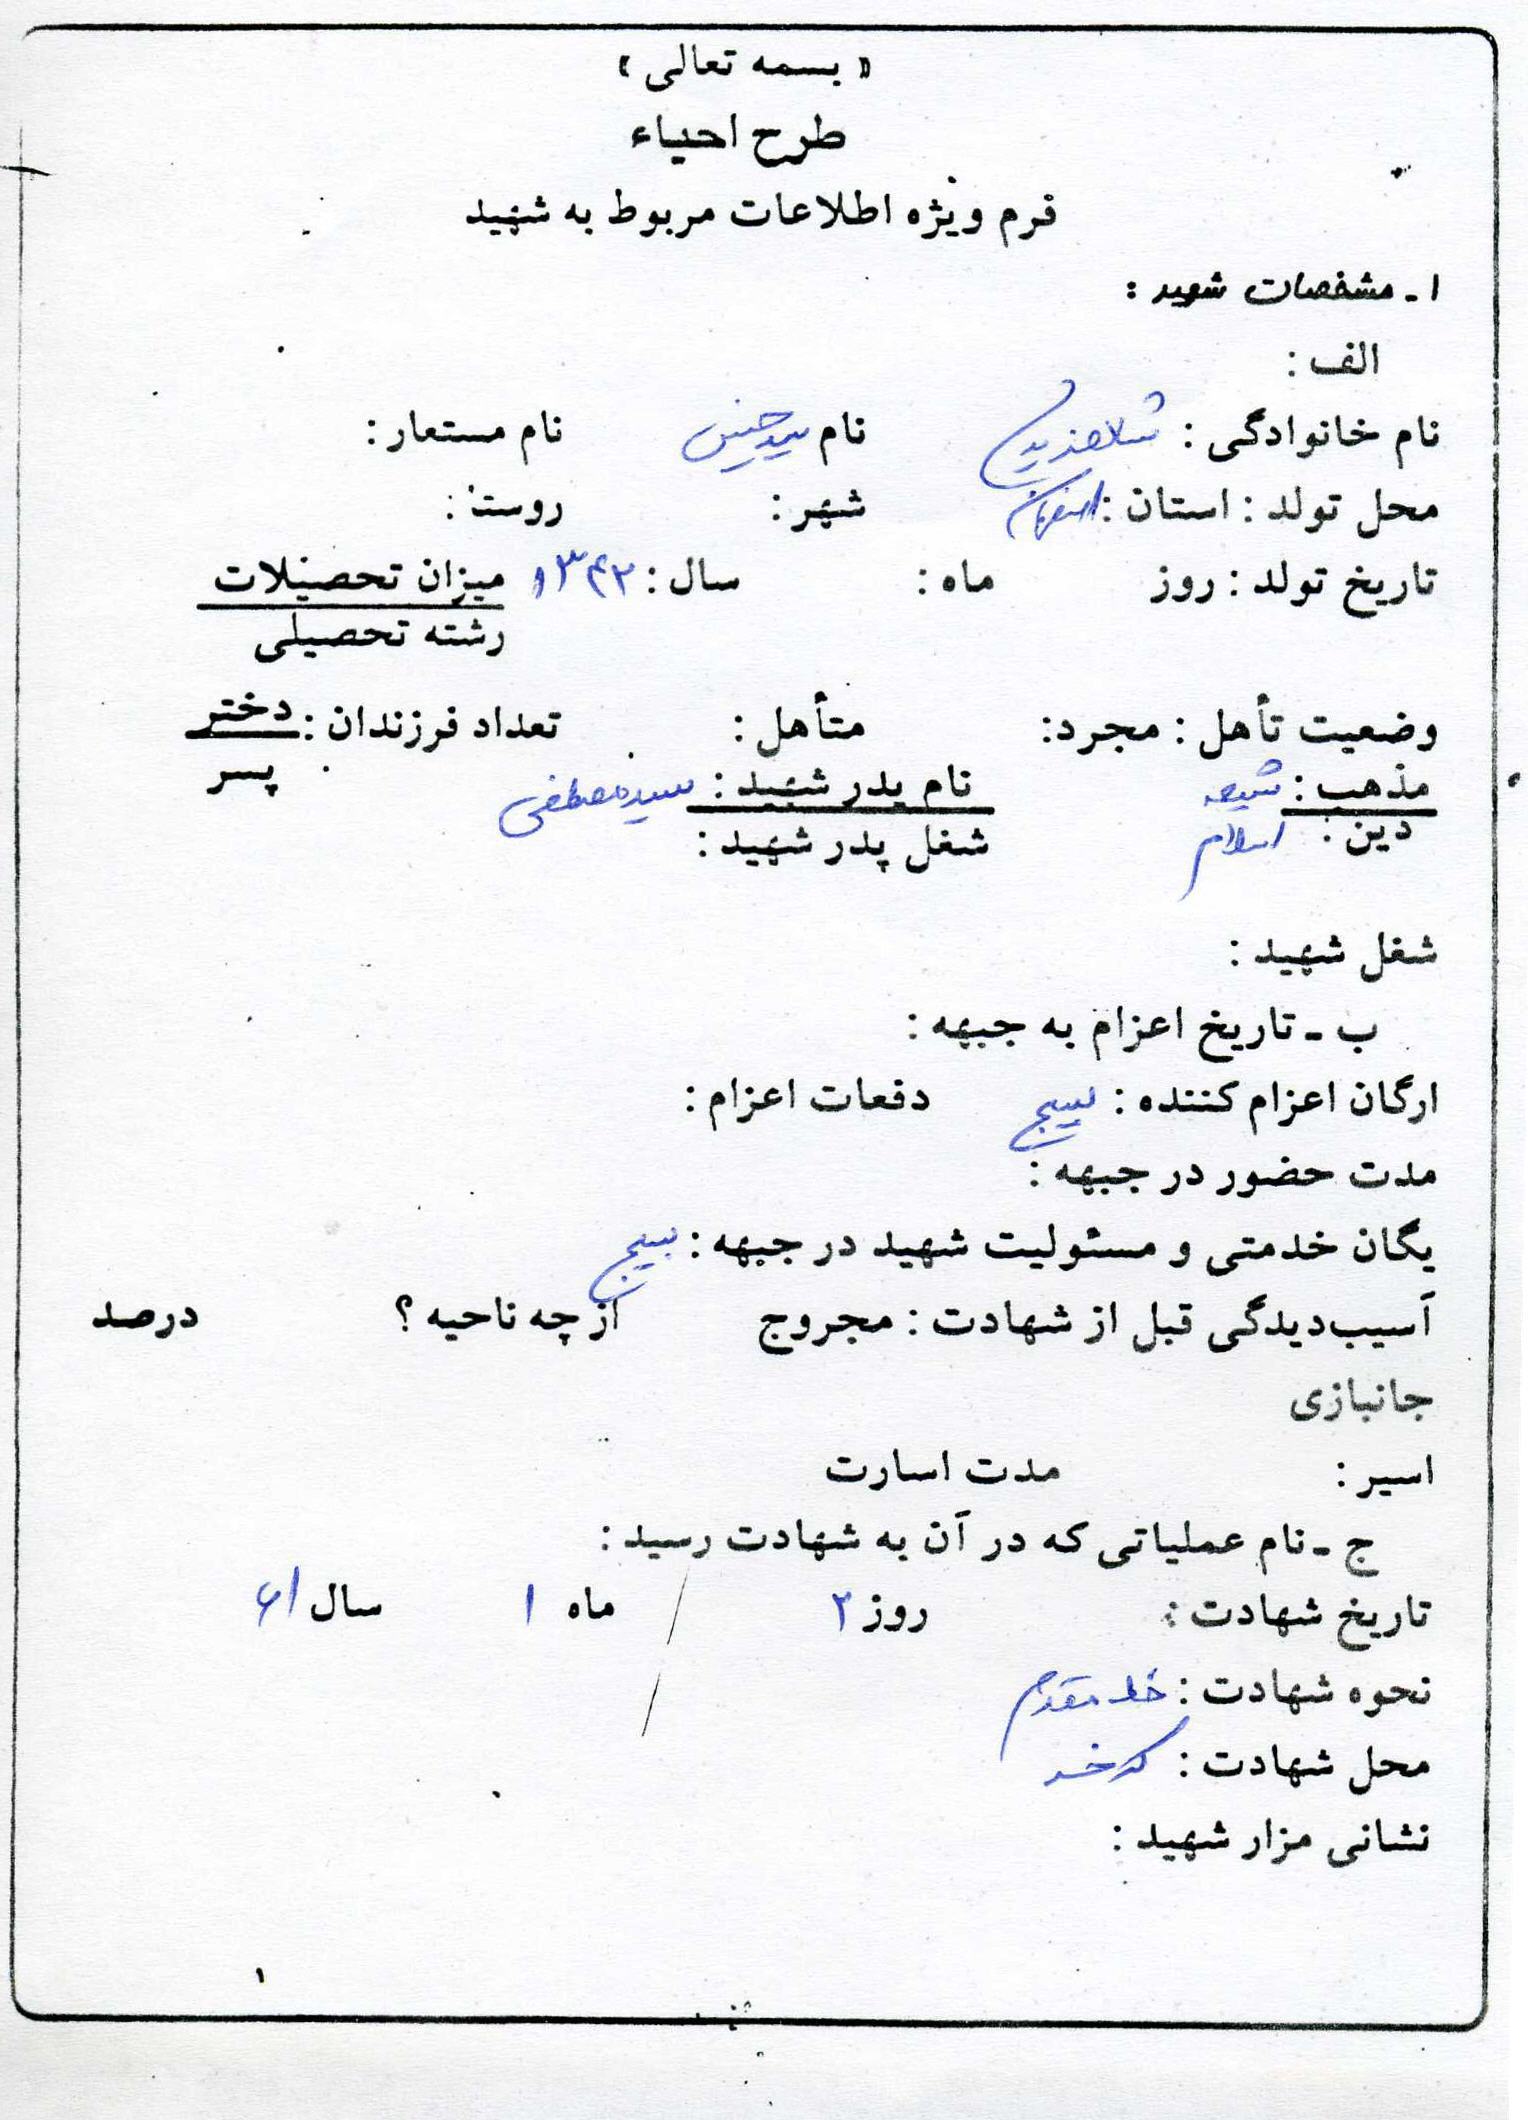 « بسمه تعالی »
طرح احیاء
فرم ویژه اطلاعات مربوط به شهید
۱ـ مشخصات شهید :
الف :
نام خانوادگی : نام سید حسین نام مستعار :
محل تولد : استان : اصفهان شهر : روستا :
تاریخ تولد : روز ماه : سال : ۱۳۴۲ میزان تحصیلات
رشته تحصیلی
وضعیت تأهل : مجرد: متأهل : تعداد فرزندان : دختر
پسر
مذهب : شیعه نام پدر شهید : سید مصطفی
دین : اسلام شغل پدر شهید :
شغل شهید :
ب ـ تاریخ اعزام به جبهه :
ارگان اعزام کننده : بسیج دفعات اعزام :
مدت حضور در جبهه :
یگان خدمتی و مسئولیت شهید در جبهه : بسیج
آسیب‌دیدگی قبل از شهادت : مجروح از چه ناحیه ؟ درصد
جانبازی
اسیر : مدت اسارت
ج ـ نام عملیاتی که در آن به شهادت رسید :
تاریخ شهادت : روز ۲ ماه ۱ سال ۶۱
نحوه شهادت : خط مقدم
محل شهادت : کرخه
نشانی مزار شهید :
۱